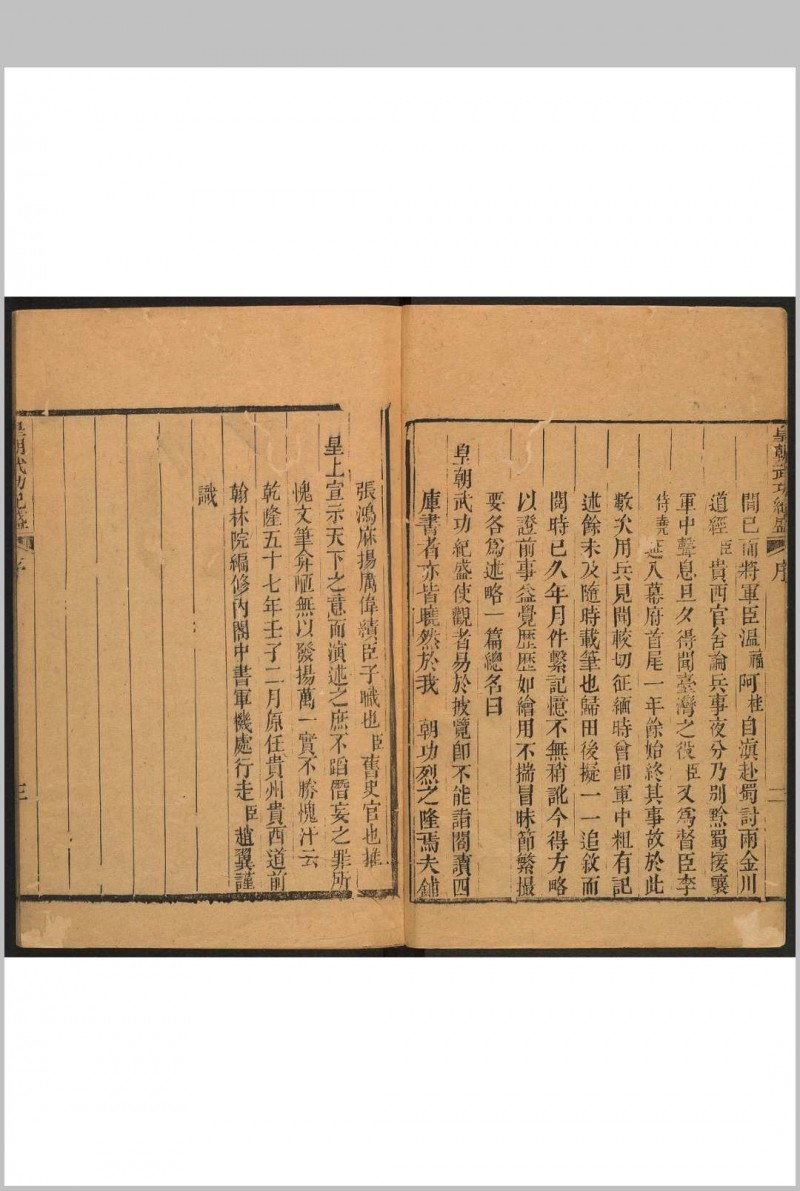 皇朝武功紀盛 序 二
間已而將軍臣温福阿桂自滇赴蜀討兩金川
道經臣貴西官舍論兵事夜分乃別黔蜀接壤
軍中聲息旦夕得聞臺灣之役臣又爲督臣李
侍堯延入幕府首尾一年餘始終其事故於此
數次用兵見聞較切征緬時曾即軍中粗有記
述餘未及隨時載筆也歸田後擬一一追敘而
閱時已久年月件繫記憶不無稍訛今得方略
以證前事益覺歷歷如繪用不揣冒昧節繁撮
要各爲述略一篇總名曰
皇朝武功紀盛使觀者易於披覽即不能詣閣讀四
庫書者亦皆曉然於我 朝功烈之隆焉夫鋪
張鴻庥揚厲偉績臣子職也臣舊史官也推
皇上宣示天下之意而演述之庶不蹈僭妄之罪所
愧文筆弇陋無以發揚萬一實不勝愧汗云
乾隆五十七年壬子二月原任貴州貴西道前
翰林院編修內閣中書軍機處行走臣趙翼謹
識
皇朝武功紀盛 序 三